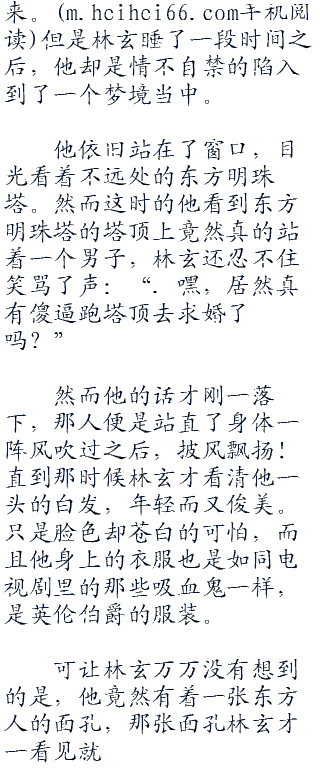 来。(m.hcihci66.com手机阅
读)但是林玄睡了一段时间之
后，他却是情不自禁的陷入
到了一个梦境当中。
他依旧站在了窗口，目
光看着不远处的东方明珠
塔。然而这时的他看到东方
明珠塔的塔顶上竟然真的站
着一个男子，林玄还忍不住
笑骂了声：“．嘿，居然真
有傻逼跑塔顶去求婚了
吗？”
然而他的话才刚一落
下，那人便是站直了身体一
阵风吹过之后，披风飘扬！
直到那时候林玄才看清他一
头的白发，年轻而又俊美。
只是脸色却苍白的可怕，而
且他身上的衣服也是如同电
视剧里的那些吸血鬼一样，
是英伦伯爵的服装。
可让林玄万万没有想到
的是，他竟然有着一张东方
人的面孔，那张面孔林玄才
一看见就